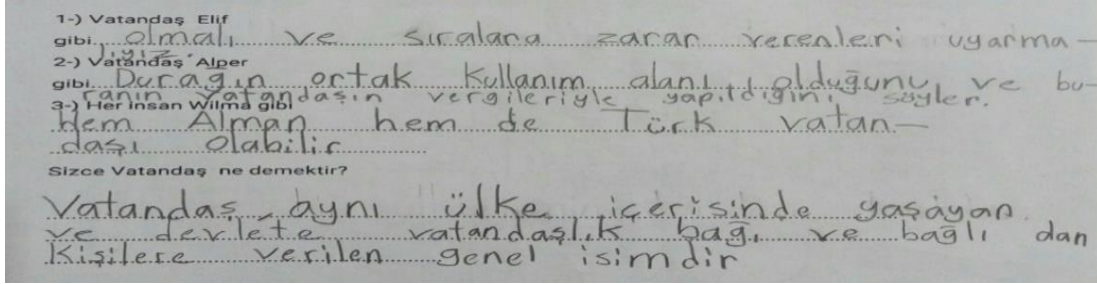 1-) Vatandaş Elif
gibi olmalı ve sıralara zarar verenleri uyarma-
lıyız
2-) Vatandaş Alper
gibi Durağın ortak kullanım alanı olduğunu ve bu-
ranın vatandaşın vergileriyle yapıldığını söyler.
3-) Her insan Wilma gibi
Hem Alman hem de Türk vatan-
daşı olabilir
Sizce Vatandaş ne demektir?
Vatandaş, aynı ülke içerisinde yaşayan
ve devlete vatandaşlık bağı ve bağlı dan
Kişilere verilen genel isimdir